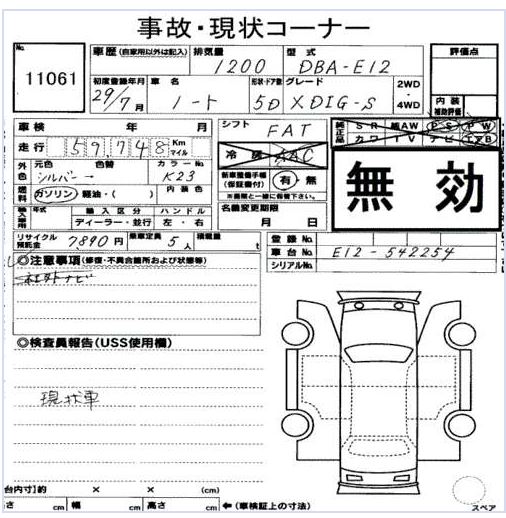 事故・現状コーナー
No. 11061
車歴 (自家用以外は記入) 排気量 1200 型式 DBA-E12 評価点
初度登録年月 29/7月 車名 ノート 形状・ドア数 5D グレード XDIG-S 2WD 4WD 内装 補助評価
車検 年 月 シフト FAT 純正品 SR 純AW PS PW
走行 59,748 Km マイル 冷房 AAC カワ TV ナビ エアB
外色 元色 シルバー 色替 カラーNo. K23 新車整備手帳 (保証書付) 有・無 無効
燃料 ガソリン・軽油・( ) 内装色 ※画像と一緒に保管下さい
輸入車用 年式 輸入区分 ハンドル 名義変更期限
ディーラー・並行 左・右 月 日
リサイクル預託金 7,890円 乗車定員 5人 積載量 t 登録No.
車台No. E12-542254
シリアルNo.
◎注意事項(修復・不具合箇所および状態等)
社外ナビ
◎検査員報告(USS使用欄)
現状車
台内寸)約 × × (cm)
さ cm 幅 cm 高さ cm ←(車検証上の寸法)
スペア